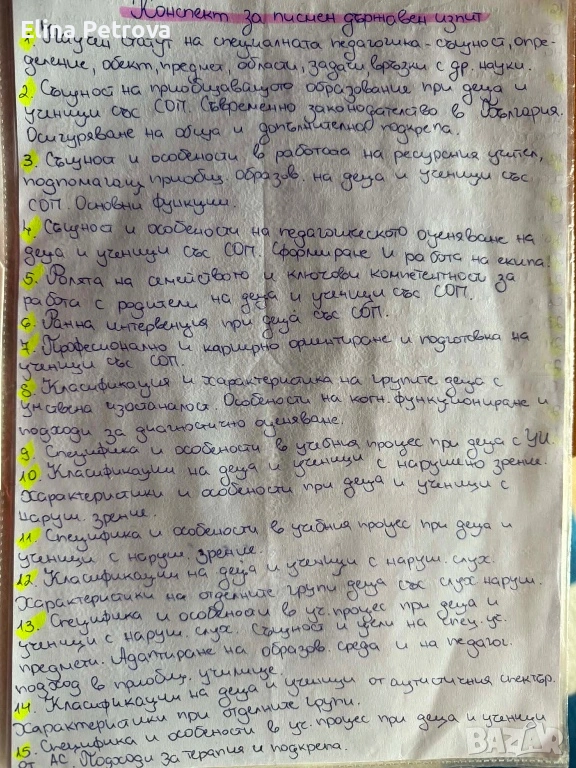 Конспект за писмен държавен изпит
Elina Petrova
1. Научен статут на специалната педагогика - същност, опре-
деление, обект, предмет, области, задачи връзки с др. науки.
2. Същност на приобщаващото образование при деца и
ученици със СОП. Съвременно законодателство в България.
Осигуряване на обща и допълнителна подкрепа.
3. Същност и особености в работата на ресурсния учител,
подпомагащ приобщ. образов. на деца и ученици със
СОП. Основни функции.
4. Същност и особености на педагогическото оценяване на
деца и ученици със СОП. Сформиране и работа на екипа!
5. Ролята на семейството и ключови компетентности за
работа с родители на деца и ученици със СОП.
6. Ранна интервенция при деца със СОП.
7. Професионално и кариерно ориентиране и подготовка на
ученици със СОП.
8. Класификация и характеристика на групите деца с
умствена изостаналост. Особености на когн. функциониране и
подходи за диагностично оценяване.
9. Специфика и особености в учебния процес при деца с УИ.
10. Класификации на деца и ученици с нарушено зрение.
Характеристики и особености при деца и ученици с
наруш. зрение.
11. Специфика и особености в учебния процес при деца и
ученици с наруш. зрение.
12. Класификации на деца и ученици с наруш. слух.
Характеристики на отделните групи деца със слух. наруш.
13. Специфика и особености в уч. процес при деца и
ученици с наруш. слух. Същност и цели на спец. уч.
предмети. Адаптиране на образов. среда и на педагог.
подход в приобщ. училище.
14. Класификации на деца и ученици от аутистичния спектър.
Характеристики при отделните групи.
15. Специфика и особености в уч. процес при деца и ученици
от АС. Подходи за терапия и подкрепа.
BAZAR